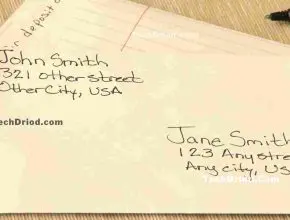 in deposit o
John Smith
321 Other street
Other City, USA
TechDriod.com
Jane Smith
123 Any stre
Any city, US
TechDriod.com